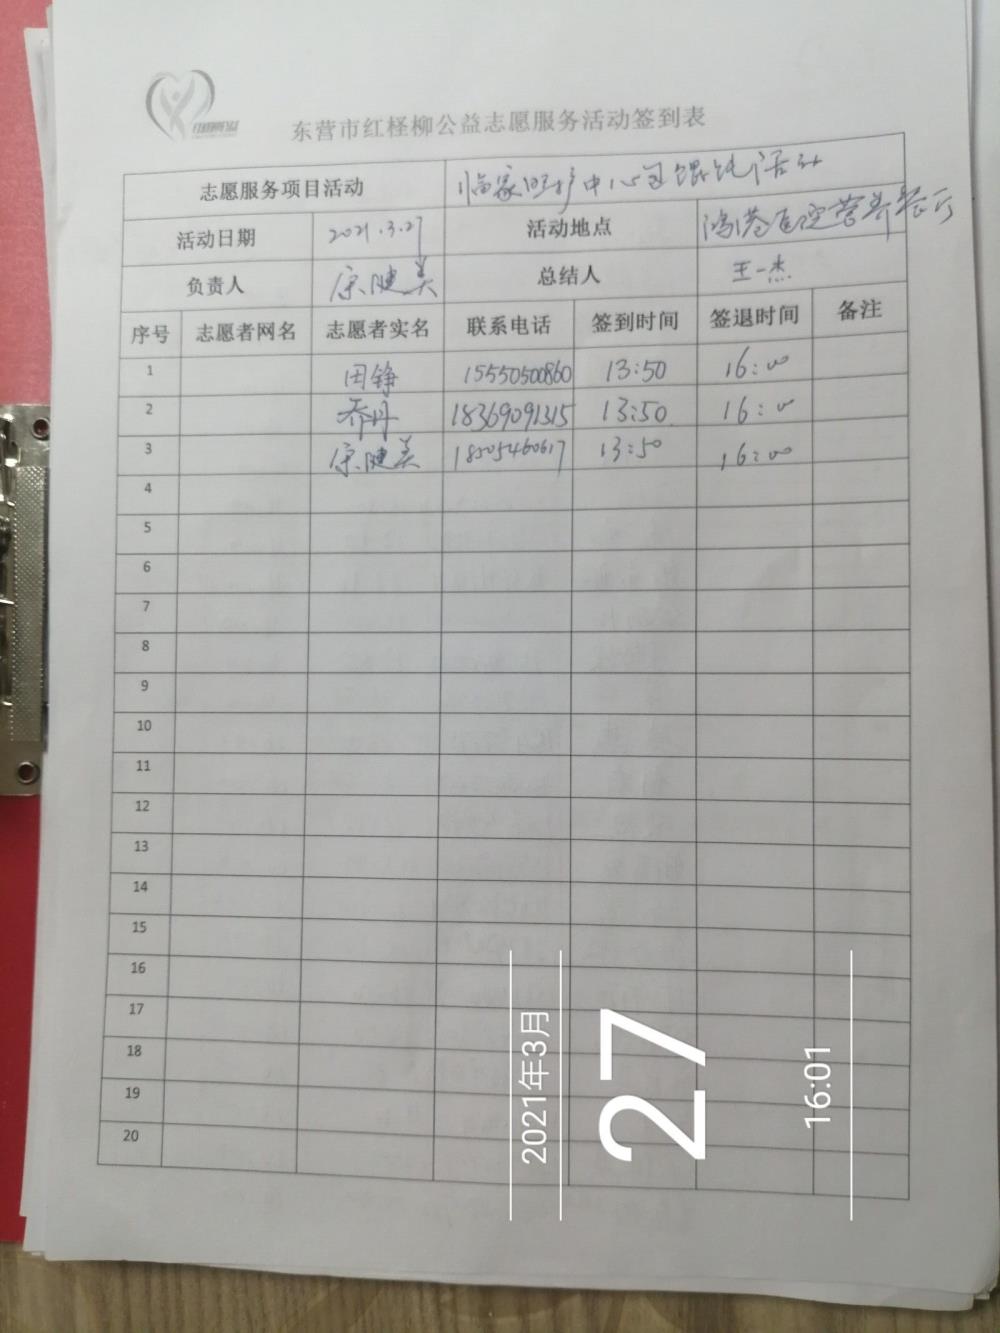 东营市红柽柳公益志愿服务活动签到表
志愿服务项目活动 临家呵护中心包馄饨活动
活动日期 2021.3.27 活动地点 鸿港医院营养餐厅
负责人 宗健美 总结人 王一杰
序号 志愿者网名 志愿者实名 联系电话 签到时间 签退时间 备注
1 田铮 15550500860 13:50 16:00
2 乔丹 18369091315 13:50 16:00
3 宗健美 18505460617 13:50 16:00
4
5
6
7
8
9
10
11
12
13
14
15
16
17
18
19
20
2021年3月
27
16:01